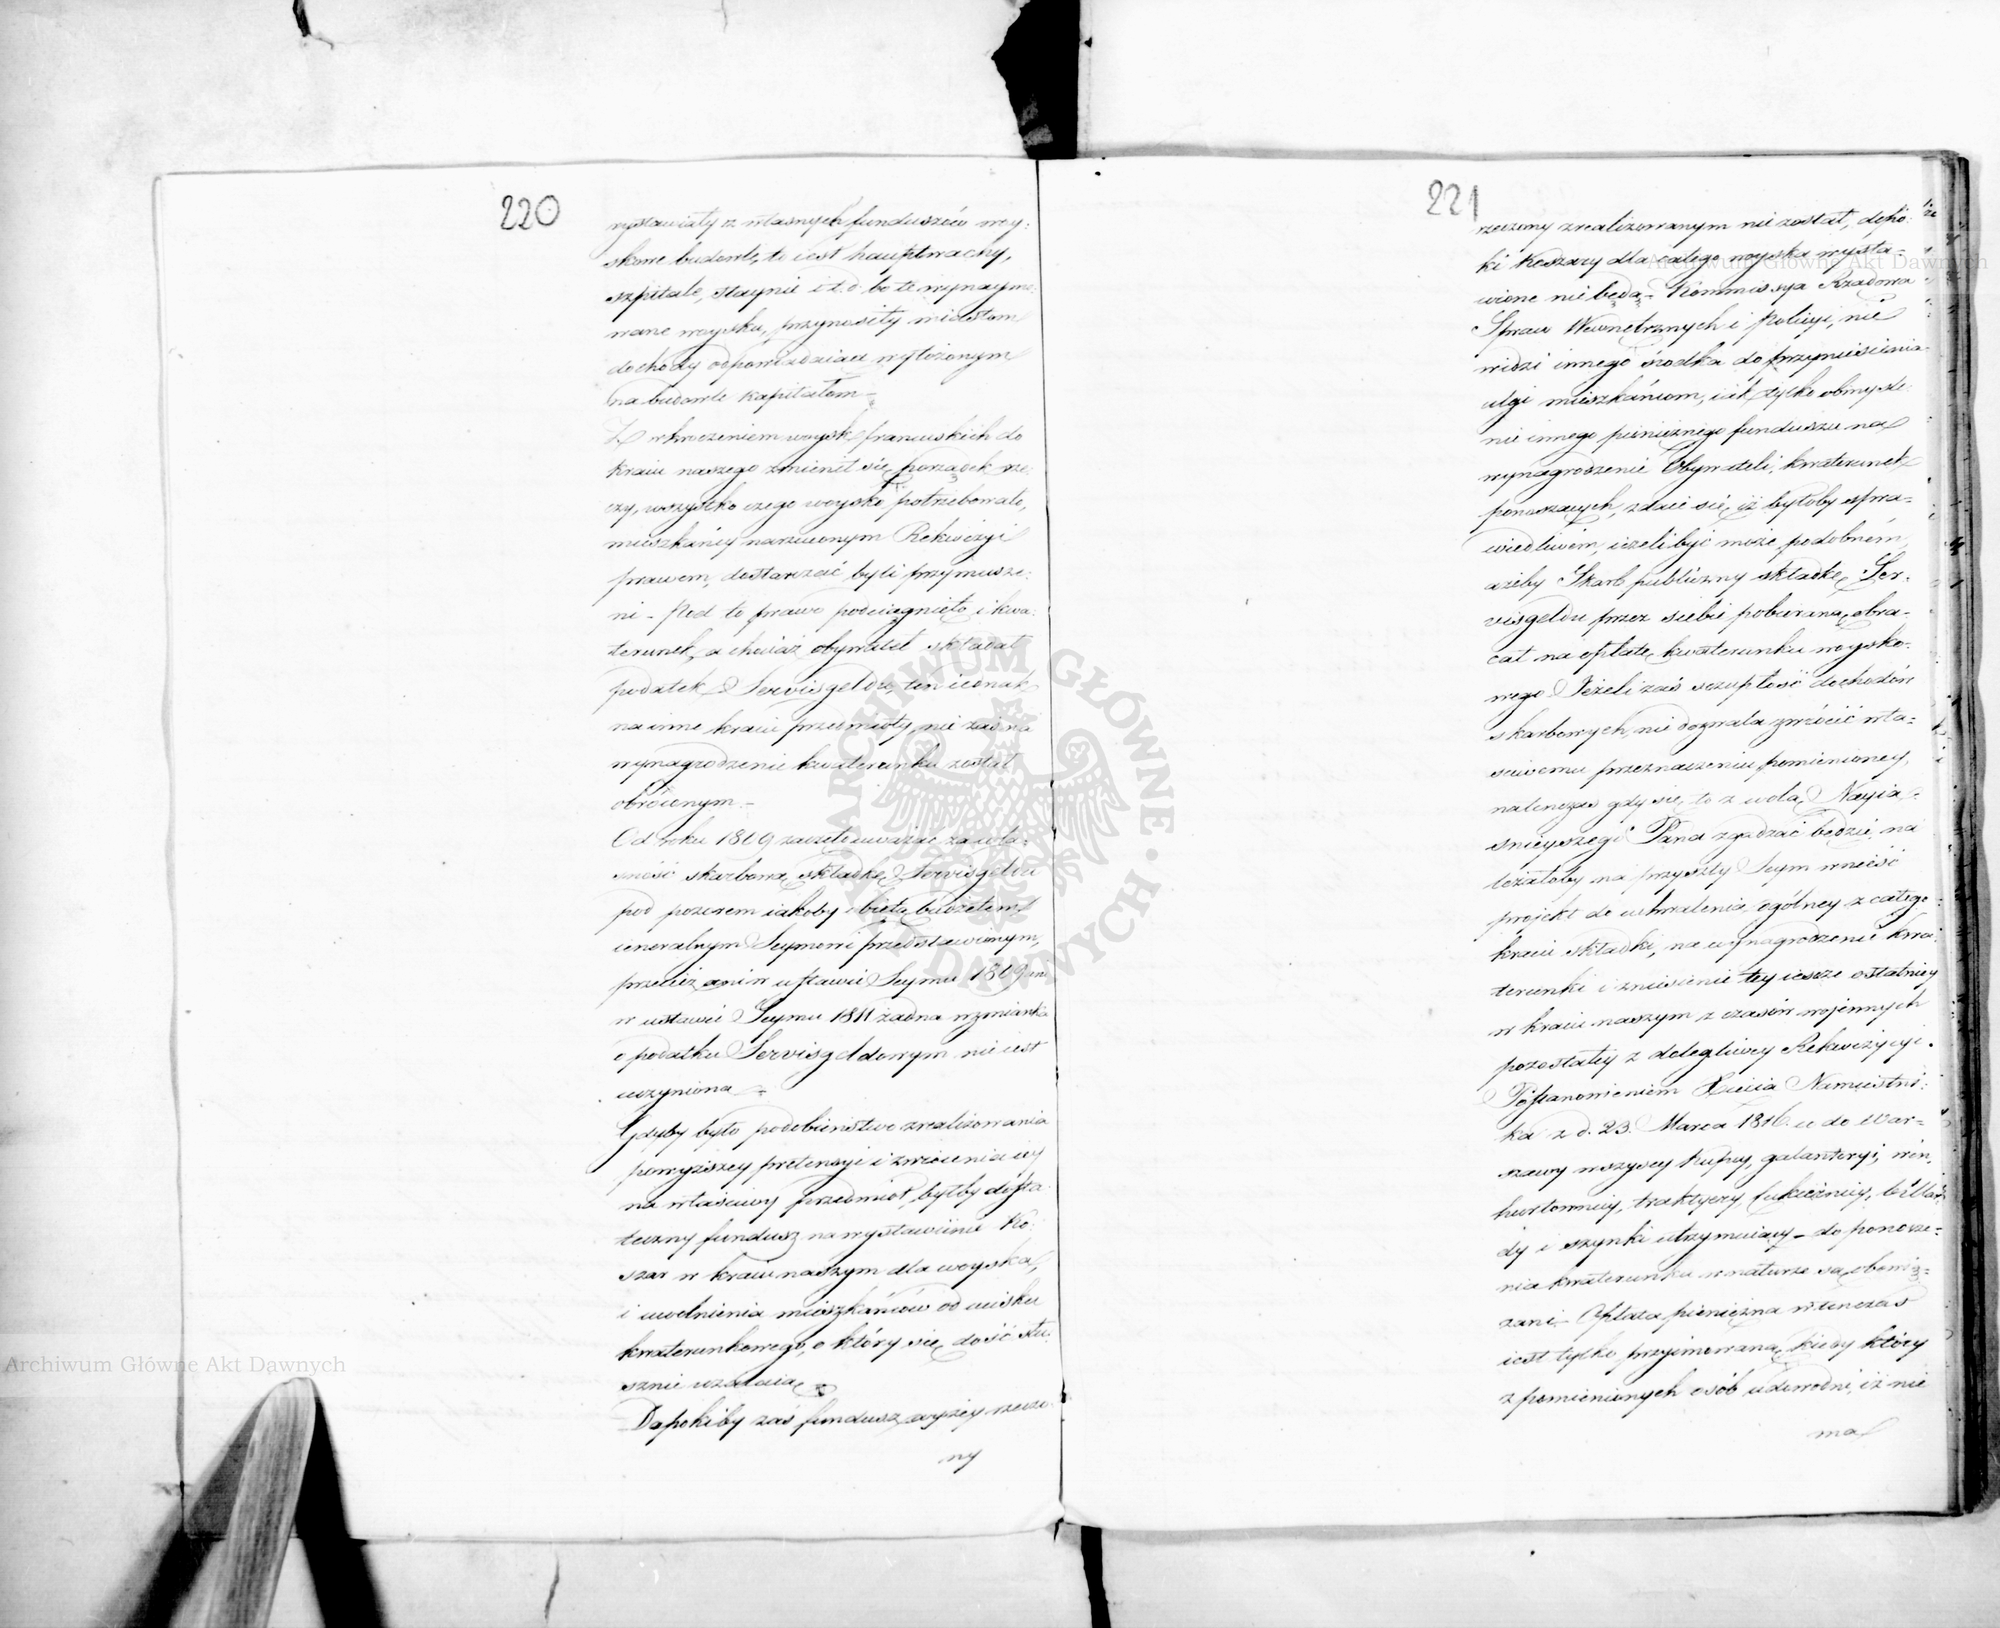 220
wystawiały z własnych funduszów woy:
skowe budowle, to iest hauptwachy,
szpitale, staynie i t. d. bo te wynaymo:
wane woysku, przynosiły miastom
dochody odpowiadaiące wyłożonym
na budowle kapitałom –
Z wkroczeniem woysk francuskich do
kraiu naszego zmienił się porządek rze:
czy, wszystko czego woysko potrzebowało,
mieszkańcy narzuconym Rekwizycyi
prawem, dostarczać byli przymusze:
ni – Pod to prawo podciągnięto i kwa:
terunek, a chociaż obywatel składał
podatek Servisgeldu, ten iednak
na inne kraiu przedmioty, nie zaś na
wynagrodzenie kwaterunku został
obróconym –
Od roku 1809 zaczęto uważać za wła:
sność skarbową składkę Servisgeldu
pod pozorem iakoby obiętą budżetem
ieneralnym Seymowi przedstawionym,
przecież ani w ustawie Seymu 1809 ani
w ustawie Seymu 1811 żadna wzmianka
o podatku Servisgeldowym nie iest
uczyniona –
Gdyby było podobieństwo zrealizowania
powyższey pretensyi i zwrócenia iey
na właściwy przedmiot, byłby dosta:
teczny fundusz na wystawienie Ko:
szar w kraiu naszym dla woyska,
i uwolnienia mieszkańców od ucisku
kwaterunkowego, o który się dość słu:
sznie użalaią
Dopokiby zaś fundusz wyżey rzeczo:
ny
221
rzeczony zrealizowanym nie został, dopó:
ki Koszary dla całego woyska wysta=
wione nie będą – Kommissya Rządowa
Spraw Wewnętrznych i Policyi, nie
widzi innego środka do przyniesienia
ulgi mieszkańcom, iak tylko obmyśle:
nie innego pieniężnego funduszu na
wynagrodzenie Obywateli, kwaterunek
ponoszących, zdaie się, iż byłoby spra=
wiedliwem, ieżeli być może podobném,
ażeby Skarb publiczny składkę Ser:
visgeldu przez siebie pobieraną obra:
cał na opłatę kwaterunku woysko:
wego. Jeżeli zaś szczupłość dochodów
skarbowych, nie dozwala zwrócić wła=
ściwemu przeznaczeniu pomienioney,
natenczas gdy się to z wolą Nayia=
śnieyszego Pana zgadzać będzie, na
leżałoby na przyszły Seym wnieść
projekt do uchwalenia ogólney z całego
kraiu składki, na wynagrodzenie kwa:
terunki i zniesienie tey ieszcze ostatniey
w kraiu naszym z czasów wojennych
pozostałey z dolegliwey Rekwizycyi.
Postanowieniem Xięcia Namiestni:
ka z d. 23. Marca 1816. r. do War=
szawy wszyscy Kupcy, galanteryi, win,
hurtownicy, traktyery, cukiernicy, billar:
dy i szynki utrzymuiący – do ponosze=
nia kwaterunku w naturze są obowią=
zani – Opłata pieniężna wtenczas
iest tylko przyimowaną, kiedy który
z pomienionych osób udowodni, iż nie
ma
Archiwum Główne Akt Dawnych
Archiwum Główne Akt Dawnych
ARCHIWUM GŁÓWNE AKT DAWNYCH